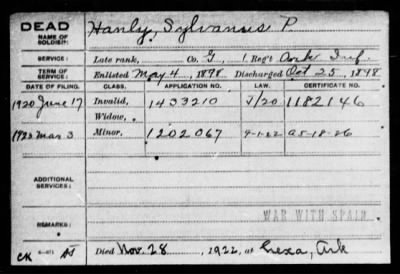 DEAD
NAME OF SOLDIER: Hanly, Sylvanus P.
SERVICE: Late rank, Co. G, 1 Reg't Ark Inf.
TERM OF SERVICE: Enlisted May 4, 1898 Discharged Oct 25, 1898
DATE OF FILING. CLASS. APPLICATION NO. LAW. CERTIFICATE NO.
1920 June 17 Invalid, 1433210 J/20 1182146
Widow,
1923 Mar. 3 Minor, 1202067 9-1-22 A5-18-26
ADDITIONAL SERVICES:
WAR WITH SPAIN
REMARKS:
CK
Died Nov. 28, 1922, at Lexa, Ark